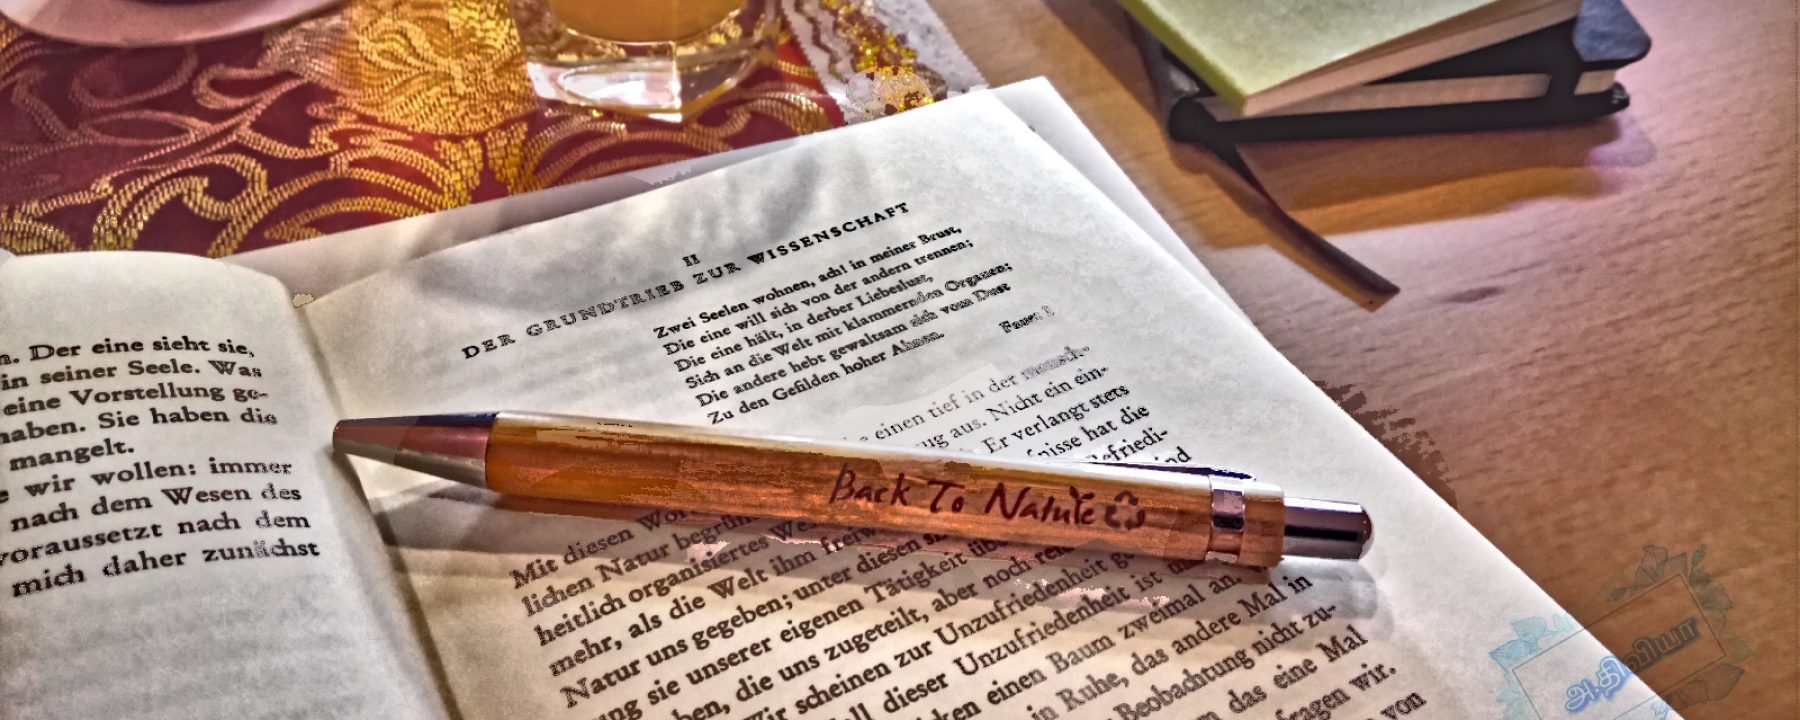 n. Der eine sieht sie,
in seiner Seele. Was
eine Vorstellung ge-
haben. Sie haben die
mangelt.
wir wollen: immer
nach dem Wesen des
voraussetzt nach dem
mich daher zunächst
II
DER GRUNDTRIEB ZUR WISSENSCHAFT
Zwei Seelen wohnen, ach! in meiner Brust,
Die eine will sich von der andern trennen;
Die eine hält, in derber Liebeslust,
Sich an die Welt mit klammernden Organen;
Die andere hebt gewaltsam sich vom Dust
Zu den Gefilden hoher Ahnen.
Faust I
einen tief in der mensch-
ug aus. Nicht ein ein-
Er verlangt stets
nisse hat die
Befriedi-
ind
Back To Nature
Mit diesen Wor
lichen Natur begrün
heitlich organisiertes We
mehr, als die Welt ihm freiw
Natur uns gegeben; unter diesen si
ng sie unserer eigenen Tätigkeit übe
ben, die uns zugeteilt, aber noch rei
Wir scheinen zur Unzufriedenheit ge
ll dieser Unzufriedenheit ist u
ken einen Baum zweimal an.
in Ruhe, das andere Mal in
Beobachtung nicht zu-
das eine Mal
fragen wir.
von
அ.திவ்யா